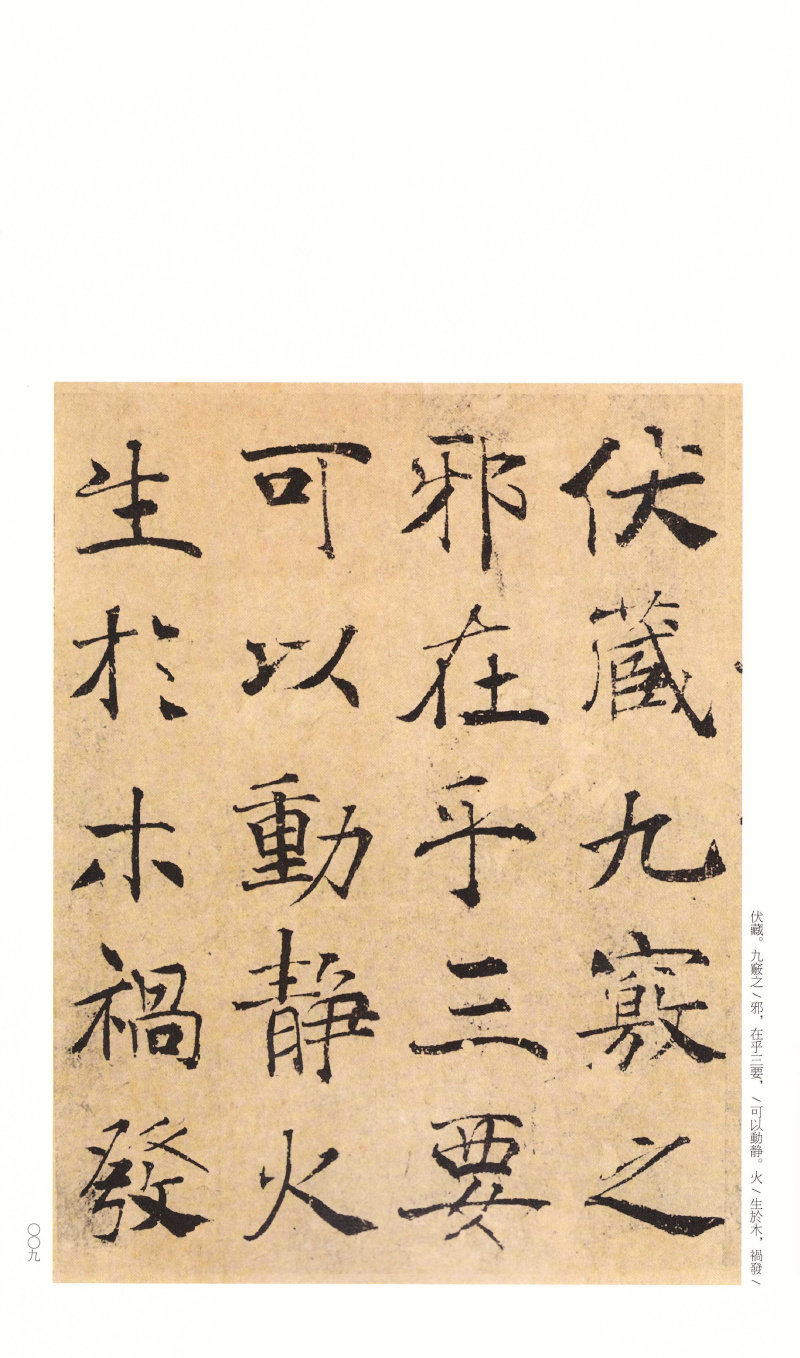 伏藏九竅之
邪在乎三要
可以動靜火
生於木禍發
伏藏。九竅之/邪，在乎三要，/可以動静。火/生於木，禍發/
〇〇九